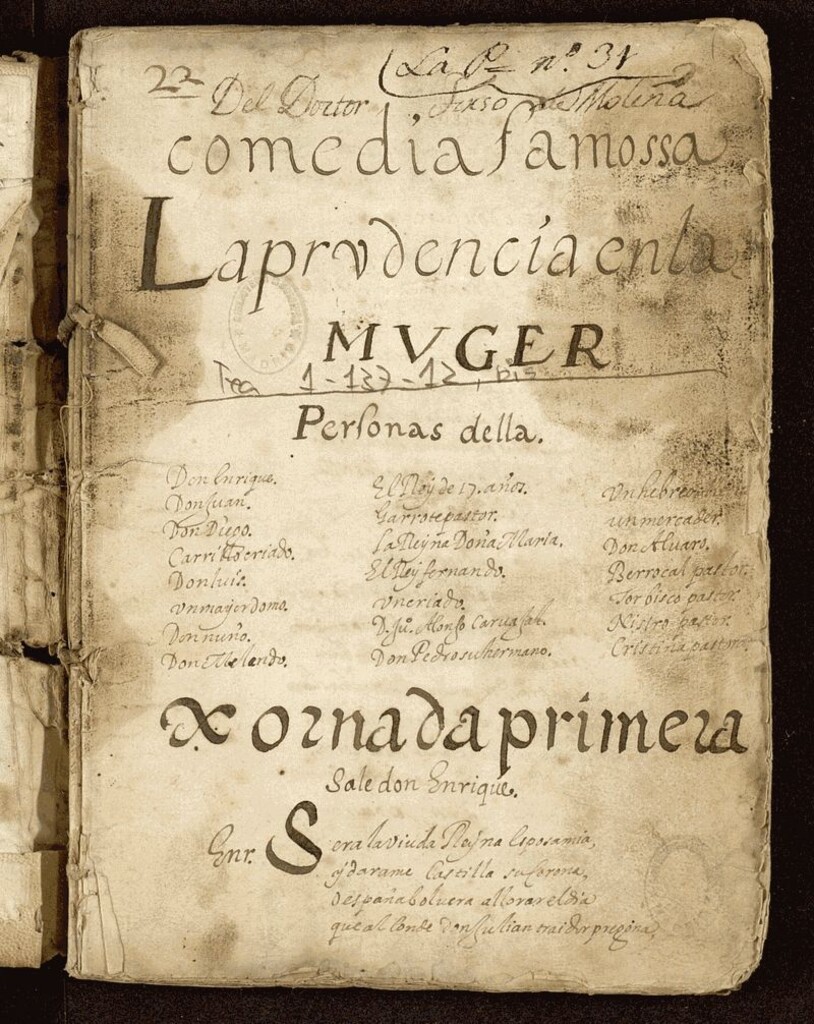 La P.e nº. 31
22
Del Doctor Tirso de Molina
comedia famossa
La prvdencia en la
MVGER
Tea 1-137-12, bis
Personas della.
Don Enrique.
Don Juan.
Don Diego.
Carrillo criado.
Don luis.
vn mayordomo.
Don nuño.
Don Melendo.
El Rey de 17. años.
Garrote pastor.
La Reyna Doña Maria.
El Rey fernando.
vn criado.
D. Ju.º Alonso Caruajal.
Don Pedro su hermano.
vn hebreo
un mercader.
Don Aluaro.
Berrocal pastor.
Torbisco pastor.
Nisiro pastor.
Cristina pastora
Xornada primera
Sale don Enrique.
Enr. Sera la viuda Reyna esposa mia,
y darame Castilla su corona,
o españa boluera a llorar el dia
que al Conde Don Julian traidor pregona